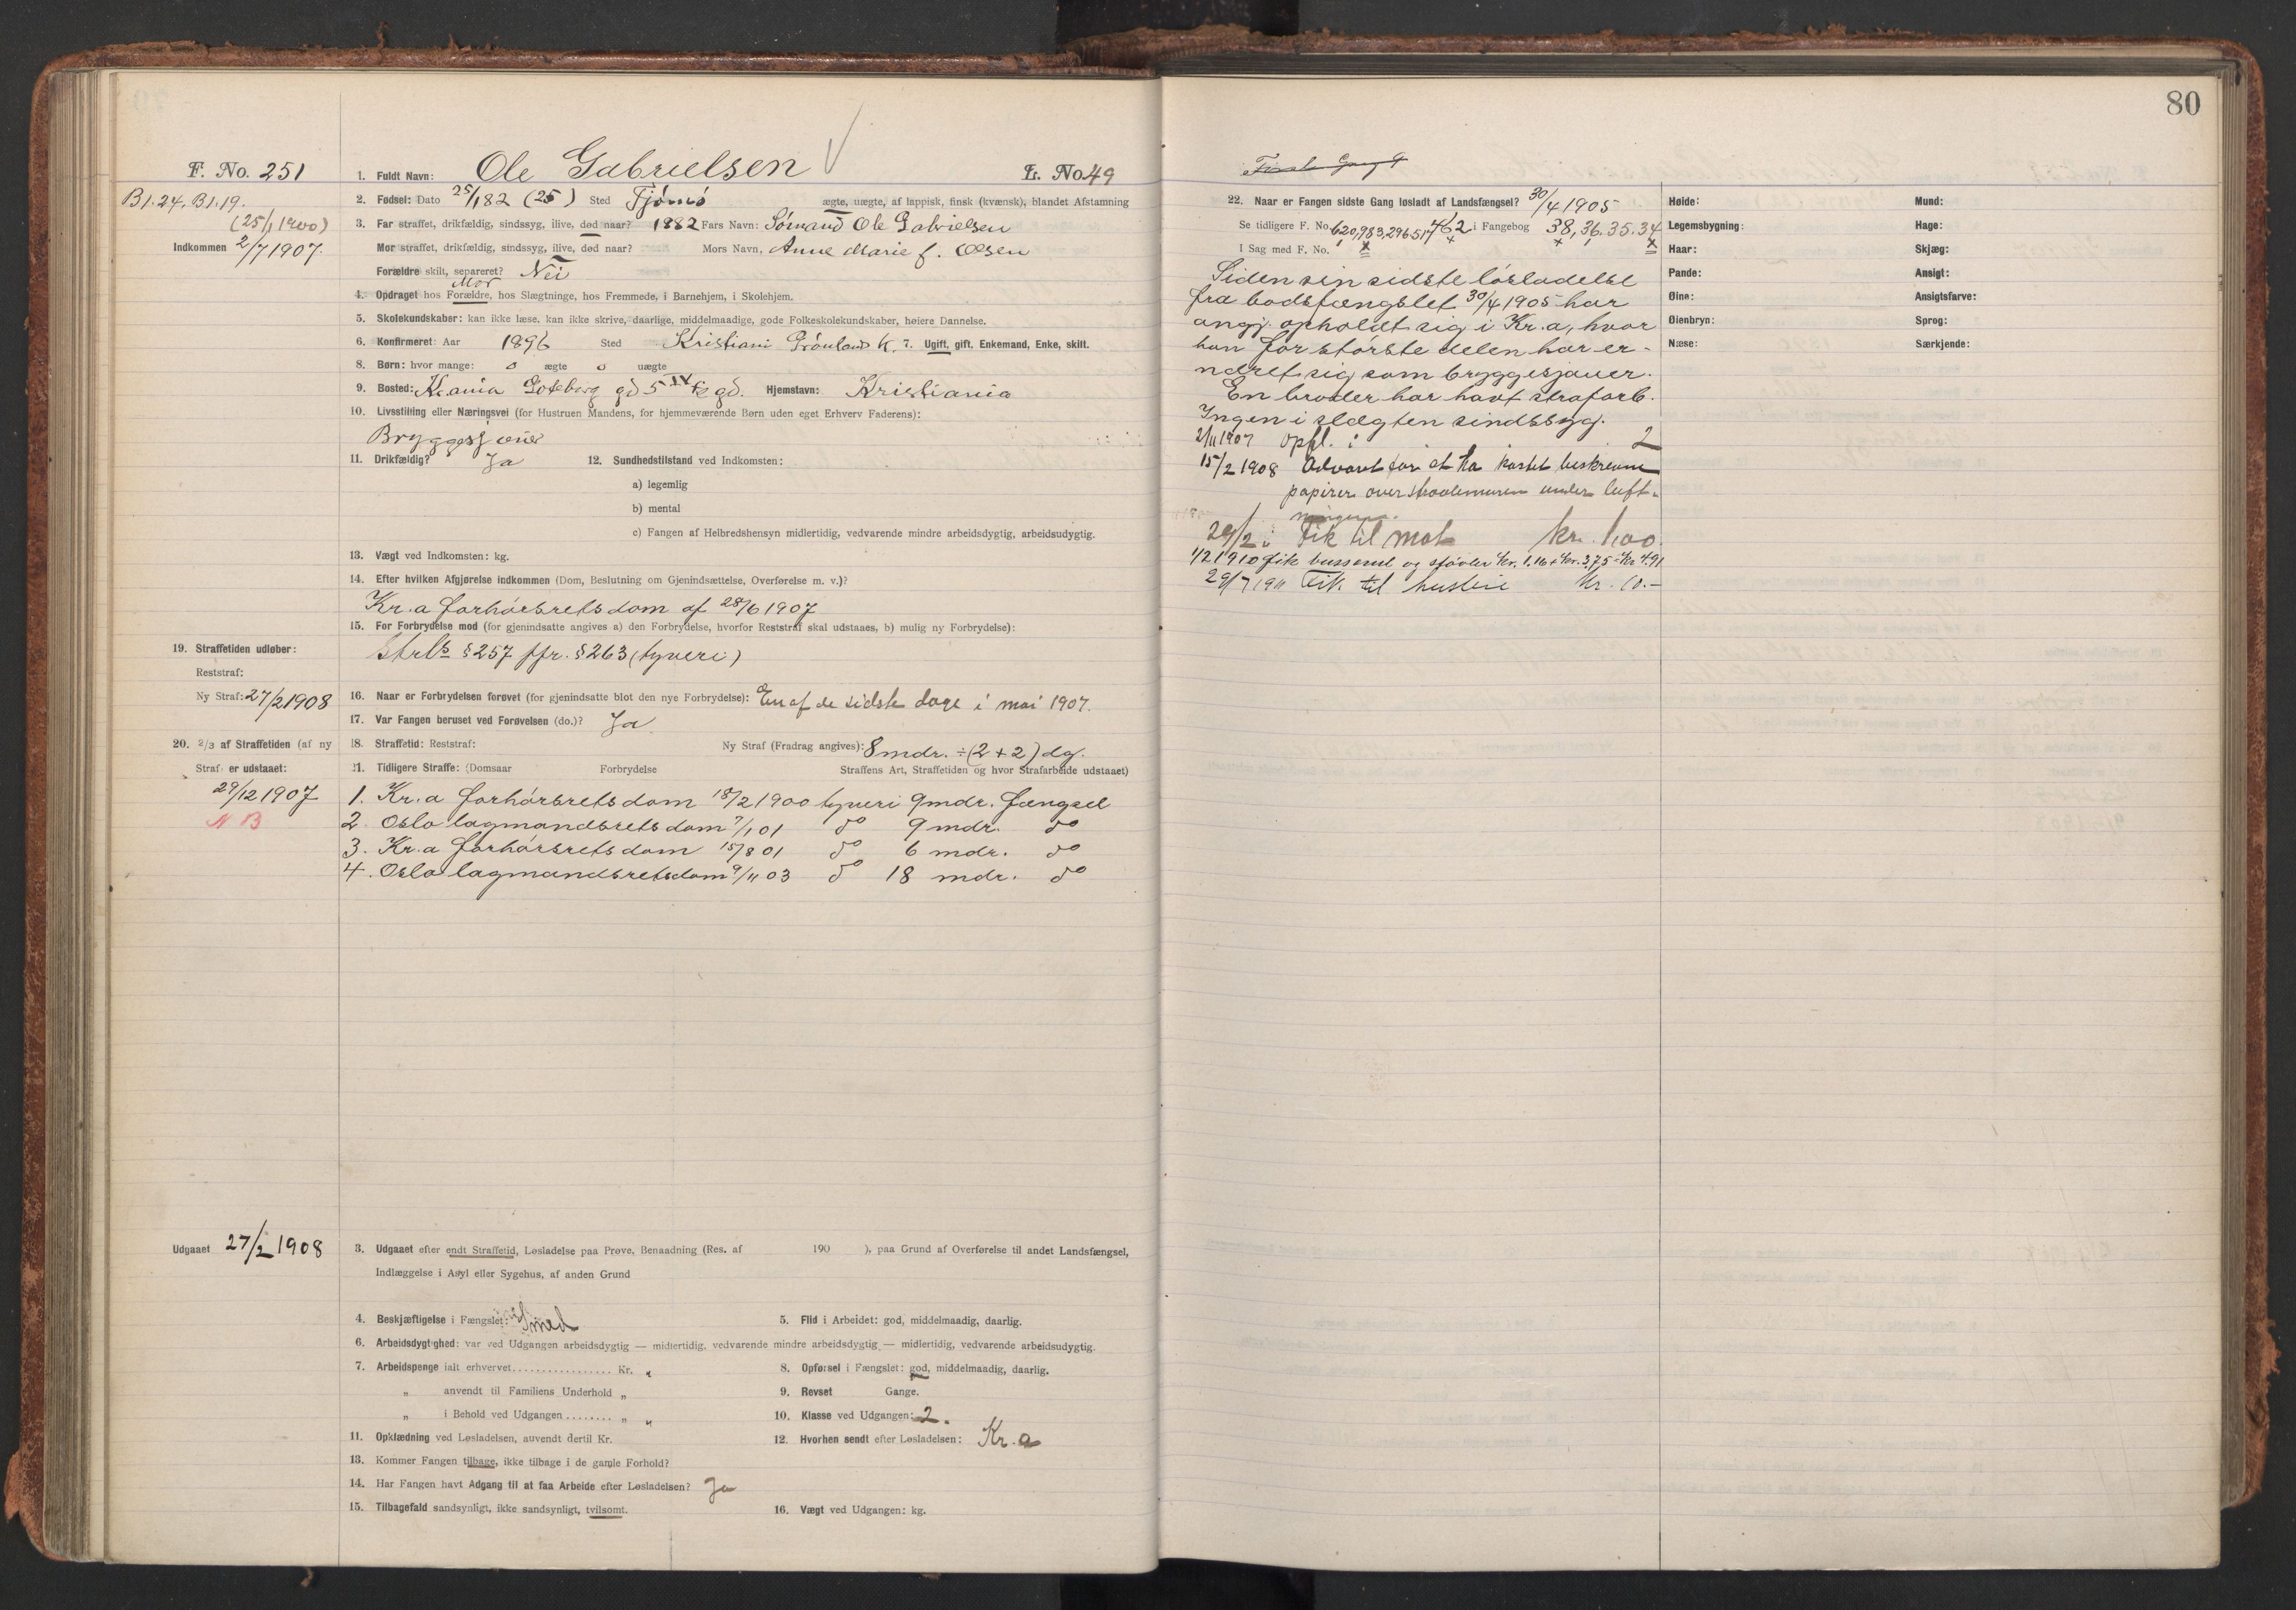 80
F. No. 251
1. Fuldt Navn: Ole Gabrielsen
L. No. 49
B1.24. B1.19.
(25/1 1900)
Indkommen 2/7 1907.
2. Fødsel: Dato 25/1 82 (25) Sted Tjømø ægte, uægte, af lappisk, finsk (kvænsk), blandet Afstamning
3. Far straffet, drikfældig, sindssyg, ilive, død naar? 1882 Fars Navn: Sømand Ole Gabrielsen
Mor straffet, drikfældig, sindssyg, ilive, død naar? Mors Navn, Anne Marie f. Olsen
Forældre skilt, separeret? Nei
Mor
4. Opdraget hos Forældre, hos Slægtninge, hos Fremmede, i Barnehjem, i Skolehjem.
5. Skolekundskaber: kan ikke læse. kan ikke skrive, daarlige, middelmaadige, gode Folkeskolekundskaber, høiere Dannelse.
6. Konfirmeret: Aar 1896 Sted Kristiani Grønlands K. 7. Ugift, gift, Enkemand, Enke, skilt.
8. Børn: hvor mange: o ægte o uægte
9. Bosted: Kr.ania Goteborg gd 5 IV gd. Hjemstavn: Kristiania
10. Livsstilling eller Næringsvei (for Hustruen Mandens, for hjemmeværende Børn uden eget Erhverv Faderens):
Bryggesjauer
11. Drikfældig? Ja 12. Sundhedstilstand ved Indkomsten:
a) legemlig
b) mental
c) Fangen af Helbredshensyn midlertidig, vedvarende mindre arbeidsdygtig, arbeidsudygtig.
13. Vægt ved Indkomsten: kg.
14. Efter hvilken Afgjørelse indkommen (Dom, Beslutning om Gjenindsættelse, Overførelse m. v.)?
Kr.a forhørsrets dom af 28/6 1907
15. For Forbrydelse mod (for gjenindsatte angives a) den Forbrydelse, hvorfor Reststraf skal udstaaes, b) mulig ny Forbrydelse):
Strls § 257 jfr. § 263 (tyveri)
19. Straffetiden udløber:
Reststraf:
Ny Straf: 27/2 1908
16. Naar er Forbrydelsen forøvet (for gjenindsatte blot den nye Forbrydelse): En af de sidste dage i mai 1907.
17. Var Fangen beruset ved Forøvelsen (do.)? Ja.
20. 2/3 af Straffetiden (af ny
Straf) er udstaaet:
29/12 1907
N B
18. Straffetid: Reststraf: Ny Straf (Fradrag angives): 8 mdr. ÷ (2 + 2) dg.
21. Tidligere Straffe: (Domsaar Forbrydelse Straffens Art, Straffetiden og hvor Strafarbeide udstaaet)
1. Kr.a forhørsrets dom 18/2 1900 tyveri 9 mdr. fængsel
2. Oslo lagmandsrets dom 7/1 01 do 9 mdr. do
3. Kr.a forhørsrets dom 15/8 01 do 6 mdr. do
4. Oslo lagmandsretsdom 9/11 03 do 18 mdr. do
Udgaaet 27/2 1908
3. Udgaaet efter endt Straffetid, Løsladelse paa Prøve, Benaadning (Res. af 190 ), paa Grund af Overførelse til andet Landsfængsel,
Indlæggelse i Asyl eller Sygehus, af anden Grund
4. Beskjæftigelse i Fængslet: Smed 5. Flid i Arbeidet: god, middelmaadig, daarlig.
6. Arbeidsdygtighed: var ved Udgangen arbeidsdygtig — midlertidig, vedvarende mindre arbeidsdygtig — midlertidig, vedvarende arbeidsudygtig.
7. Arbeidspenge ialt erhvervet................. Kr. " 8. Opførsel i Fængslet: god, middelmaadig, daarlig.
" anvendt til Familiens Underhold " 9. Revset Gange.
" i Behold ved Udgangen ........ " " 10. Klasse ved Udgangen: 2.
11. Opklædning ved Løsladelsen, anvendt dertil Kr. 12. Hvorhen sendt efter Løsladelsen: Kr. a
13. Kommer Fangen tilbage, ikke tilbage i de gamle Forhold?
14. Har Fangen havt Adgang til at faa Arbeide efter Løsladelsen? Ja
15. Tilbagefald sandsynligt, ikke sandsynligt, tvilsomt. 16. Vægt ved Udgangen: kg.
22. Naar er Fangen sidste Gang løsladt af Landsfængsel? 30/4 1905
Se tidligere F. No. 620, 983, 296 517 462 i Fangebog 38, 36. 35. 34
I Sag med F. No.
Siden sin sidste løsladelse
fra bodsfængslet 30/4 1905 har
angj. opholdt sig i Kr.a, hvor
han for største delen har er-
næret sig som bryggesjauer.
En broder har havt strafarb.
Ingen i slægten sindssyg.
2/11 1907 opfl. i 2
15/2 1908 Advaret for at ha kastet beskrevne
papirer over straalemuren under luft-
ningen.
29/2 : Fik til mat kr. 1.00.
1/2 1910 fik busserul og støvler Kr. 1.16 + Kr. 3,75 = Kr 4.91
29/7 1911 Fik til husleie Kr. 10.–
Høide: Mund:
Legemsbygning: Hage:
Haar: Skjæg:
Pande: Ansigt:
Øine: Ansigtsfarve:
Øienbryn: Sprog:
Næse: Særkjende: